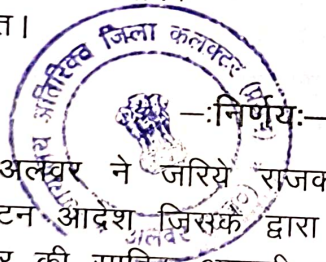 त।
अतिरिक्त जिला कलक्टर
—:निर्णय:—
अलवर ने जरिये राजक
टन आदेश जिसके द्वारा
अलवर
र की